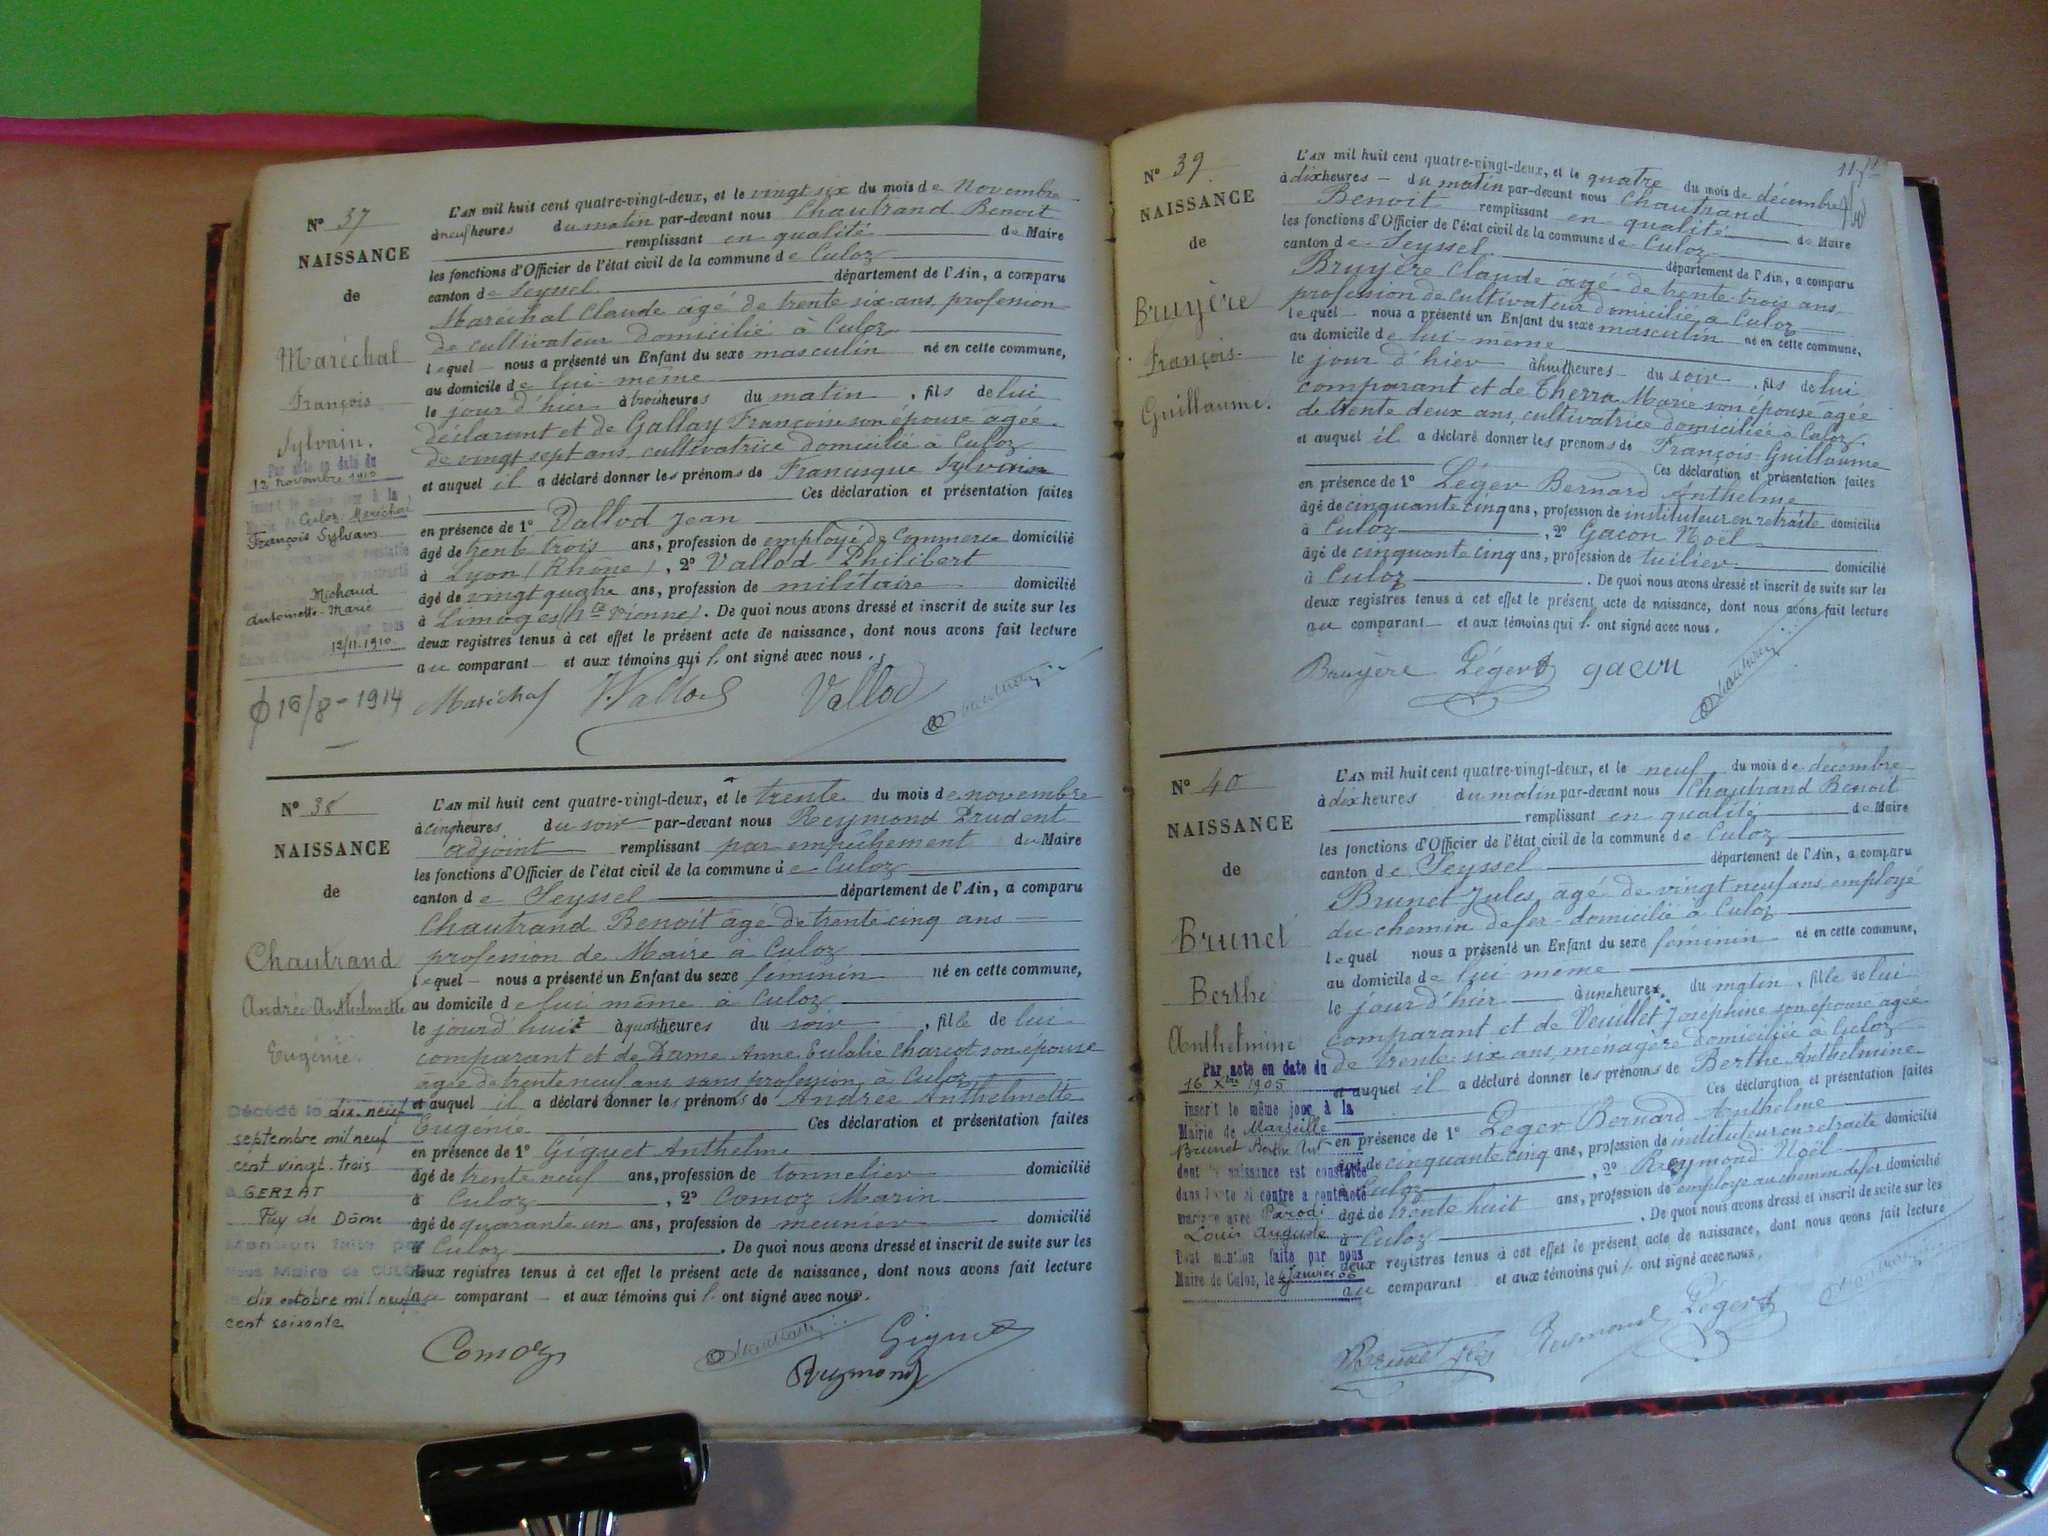 N° 37
NAISSANCE
de
Maréchal
François
Sylvain.
Par acte en date du
12 novembre 1910
Culoz Maréchal
François Sylvain
Michaud
Antoinette-Marie
12/11.1910
16/8-1914
L'AN mil huit cent quatre-vingt-deux, et le vingt six du mois de Novembre
à neuf heures du matin par-devant nous Chautrand Benoit
remplissant en qualité de Maire
les fonctions d'Officier de l'état civil de la commune de Culoz
canton de Seyssel département de l'Ain, a comparu
Maréchal Claude âgé de trente six ans, profession
de cultivateur domicilié à Culoz
lequel nous a présenté un Enfant du sexe masculin né en cette commune,
au domicile de lui-même
le jour d'hier à trois heures du matin, fils de lui
déclarant et de Gallay Françoise son épouse âgée
de vingt sept ans, cultivatrice domicilié à Culoz
et auquel il a déclaré donner les prénoms de Francisque Sylvain
Ces déclaration et présentation faites
en présence de 1° Vallod Jean
âgé de trente trois ans, profession de employé de Commerce domicilié
à Lyon (Rhône), 2° Vallod Philibert
âgé de vingt quatre ans, profession de militaire domicilié
à Limoges (hte Vienne). De quoi nous avons dressé et inscrit de suite sur les
deux registres tenus à cet effet le présent acte de naissance, dont nous avons fait lecture
au comparant et aux témoins qui l. ont signé avec nous.
Maréchal Vallod Vallod
N° 38
NAISSANCE
de
Chautrand
Andrée Anthelmette
Eugénie.
Décédé le dix neuf
septembre mil neuf
cent vingt-trois
à GERZAT
Puy de Dôme
Mention faite par
nous Maire de CULOZ
dix octobre mil neuf
cent soixante
L'AN mil huit cent quatre-vingt-deux, et le trente du mois de novembre
à cinq heures du soir par-devant nous Reymond Prudent
adjoint remplissant par empêchement du Maire
les fonctions d'Officier de l'état civil de la commune de Culoz
canton de Seyssel département de l'Ain, a comparu
Chautrand Benoit âgé de trente cinq ans
profession de Maire à Culoz
lequel nous a présenté un Enfant du sexe féminin né en cette commune,
au domicile de lui même à Culoz
le jourd'hui à quatre heures du soir, fille de lui
comparant et de Dame Anne Eulalie Charcot son épouse
âgée de trente neuf ans sans profession, à Culoz
et auquel il a déclaré donner les prénoms de Andrée Anthelmette
Eugénie Ces déclaration et présentation faites
en présence de 1° Giguet Anthelme
âgé de trente neuf ans, profession de tonnelier domicilié
à Culoz, 2° Comoz Marin
âgé de quarante un ans, profession de meunier domicilié
à Culoz. De quoi nous avons dressé et inscrit de suite sur les
deux registres tenus à cet effet le présent acte de naissance, dont nous avons fait lecture
au comparant et aux témoins qui l. ont signé avec nous.
Comoz Giguet
Reymond
N° 39
NAISSANCE
de
Bruyère
François
Guillaume.
L'AN mil huit cent quatre-vingt-deux, et le quatre du mois de décembre
à dix heures du matin par-devant nous Chautrand
Benoit remplissant en qualité de Maire
les fonctions d'Officier de l'état civil de la commune de Culoz
canton de Seyssel département de l'Ain, a comparu
Bruyère Claude âgé de trente trois ans
profession de cultivateur domicilié à Culoz
lequel nous a présenté un Enfant du sexe masculin né en cette commune,
au domicile de lui-même
le jour d'hier à huit heures du soir, fils de lui
comparant et de Therra Marie son épouse âgée
de trente deux ans, cultivatrice domiciliée à Culoz.
et auquel il a déclaré donner les prénoms de François Guillaume
Ces déclaration et présentation faites
en présence de 1° Léger Bernard Anthelme
âgé de cinquante cinq ans, profession de instituteur en retraite domicilié
à Culoz, 2° Gacon Noël
âgé de cinquante cinq ans, profession de tuilier domicilié
à Culoz. De quoi nous avons dressé et inscrit de suite sur les
deux registres tenus à cet effet le présent acte de naissance, dont nous avons fait lecture
au comparant et aux témoins qui l. ont signé avec nous.
Bruyère Léger gacon
N° 40
NAISSANCE
de
Brunet
Berthe
Anthelmine
Par acte en date du
16 Xbre 1905
inscrit le même jour à la
Mairie de Marseille
Brunet Berthe
dont la naissance est constatée
dans l'acte ci contre a contracté
mariage avec Parodi
Louis Auguste
Dont mention faite par nous
Maire de Culoz, le 4 Janvier 06
L'AN mil huit cent quatre-vingt-deux, et le neuf du mois de décembre
à dix heures du matin par-devant nous Chautrand Benoit
remplissant en qualité de Maire
les fonctions d'Officier de l'état civil de la commune de Culoz
canton de Seyssel département de l'Ain, a comparu
Brunet Jules âgé de vingt neuf ans employé
du chemin de fer domicilié à Culoz
lequel nous a présenté un Enfant du sexe féminin né en cette commune,
au domicile de lui même
le jour d'hier à une heure du matin, fille de lui
comparant et de Veuillet Joséphine son épouse âgée
de trente six ans, ménagère domiciliée à Culoz
et auquel il a déclaré donner les prénoms de Berthe Anthelmine
Ces déclaration et présentation faites
en présence de 1° Léger Bernard Anthelme
âgé de cinquante cinq ans, profession de instituteur en retraite domicilié
à Culoz, 2° Reymond Noël
âgé de trente huit ans, profession de employé au chemin de fer domicilié
à Culoz. De quoi nous avons dressé et inscrit de suite sur les
deux registres tenus à cet effet le présent acte de naissance, dont nous avons fait lecture
au comparant et aux témoins qui l. ont signé avec nous.
Brunet Jles Reymond Léger